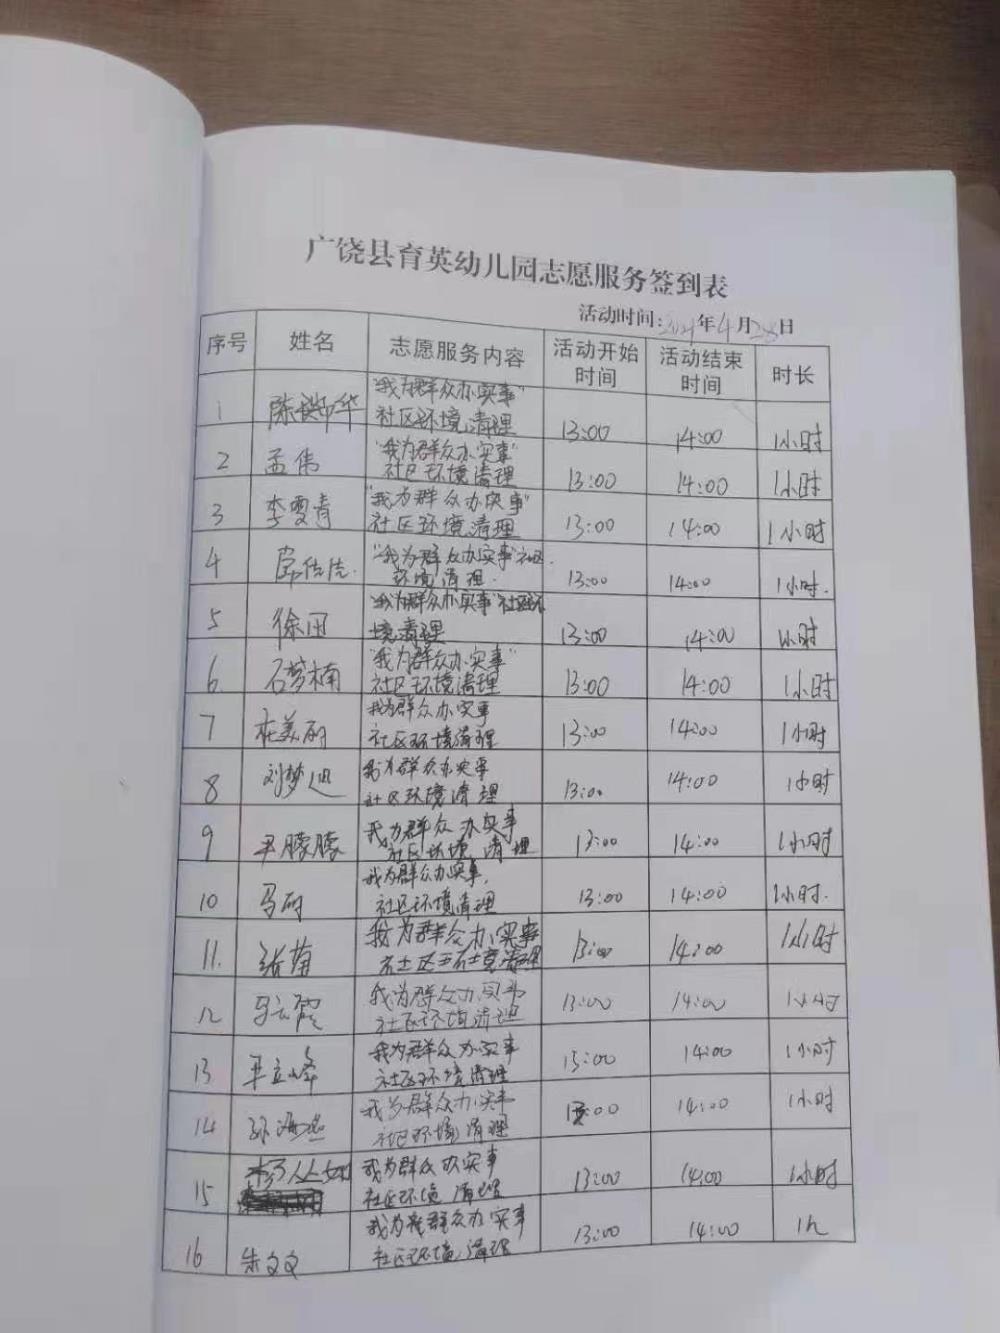 广饶县育英幼儿园志愿服务签到表
活动时间:2021年4月28日
序号 姓名 志愿服务内容 活动开始时间 活动结束时间 时长
1 陈 华 "我为群众办实事" 社区环境清理 13:00 14:00 1小时
2 孟伟 "我为群众办实事" 社区环境清理 13:00 14:00 1小时
3 李雪青 "我为群众办实事" 社区环境清理 13:00 14:00 1小时
4 "我为群众办实事"社区环境清理. 13:00 14:00 1小时.
5 徐田 "我为群众办实事"社区环境清理 13:00 14:00 1小时
6 石梦楠 "我为群众办实事" 社区环境清理 13:00 14:00 1小时
7 美丽 我为群众办实事 社区环境清理 13:00 14:00 1小时
8 刘梦迪 我为群众办实事 社区环境清理 13:00 14:00 1小时
9 尹朦朦 我为群众办实事 社区环境清理 13:00 14:00 1小时
10 马丽 我为群众办实事, 社区环境清理 13:00 14:00 1小时.
11. 张菊 我为群众办实事 社区环境清理 13:00 14:00 1小时
12 马云霞 我为群众办实事 社区环境清理 13:00 14:00 1小时
13 立峰 我为群众办实事 社区环境清理 13:00 14:00 1小时
14 孙海燕 我为群众办实事 社区环境清理 13:00 14:00 1小时
15 杨丛 我为群众办实事 社区环境清理 13:00 14:00 1小时
16 朱文文 我为群众办实事 社区环境清理 13:00 14:00 1h